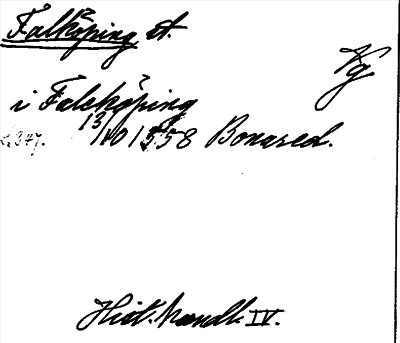 Falköping st.
Vg
i Falcköping
13/10 1558 Bonared.
Hist. handl. IV.